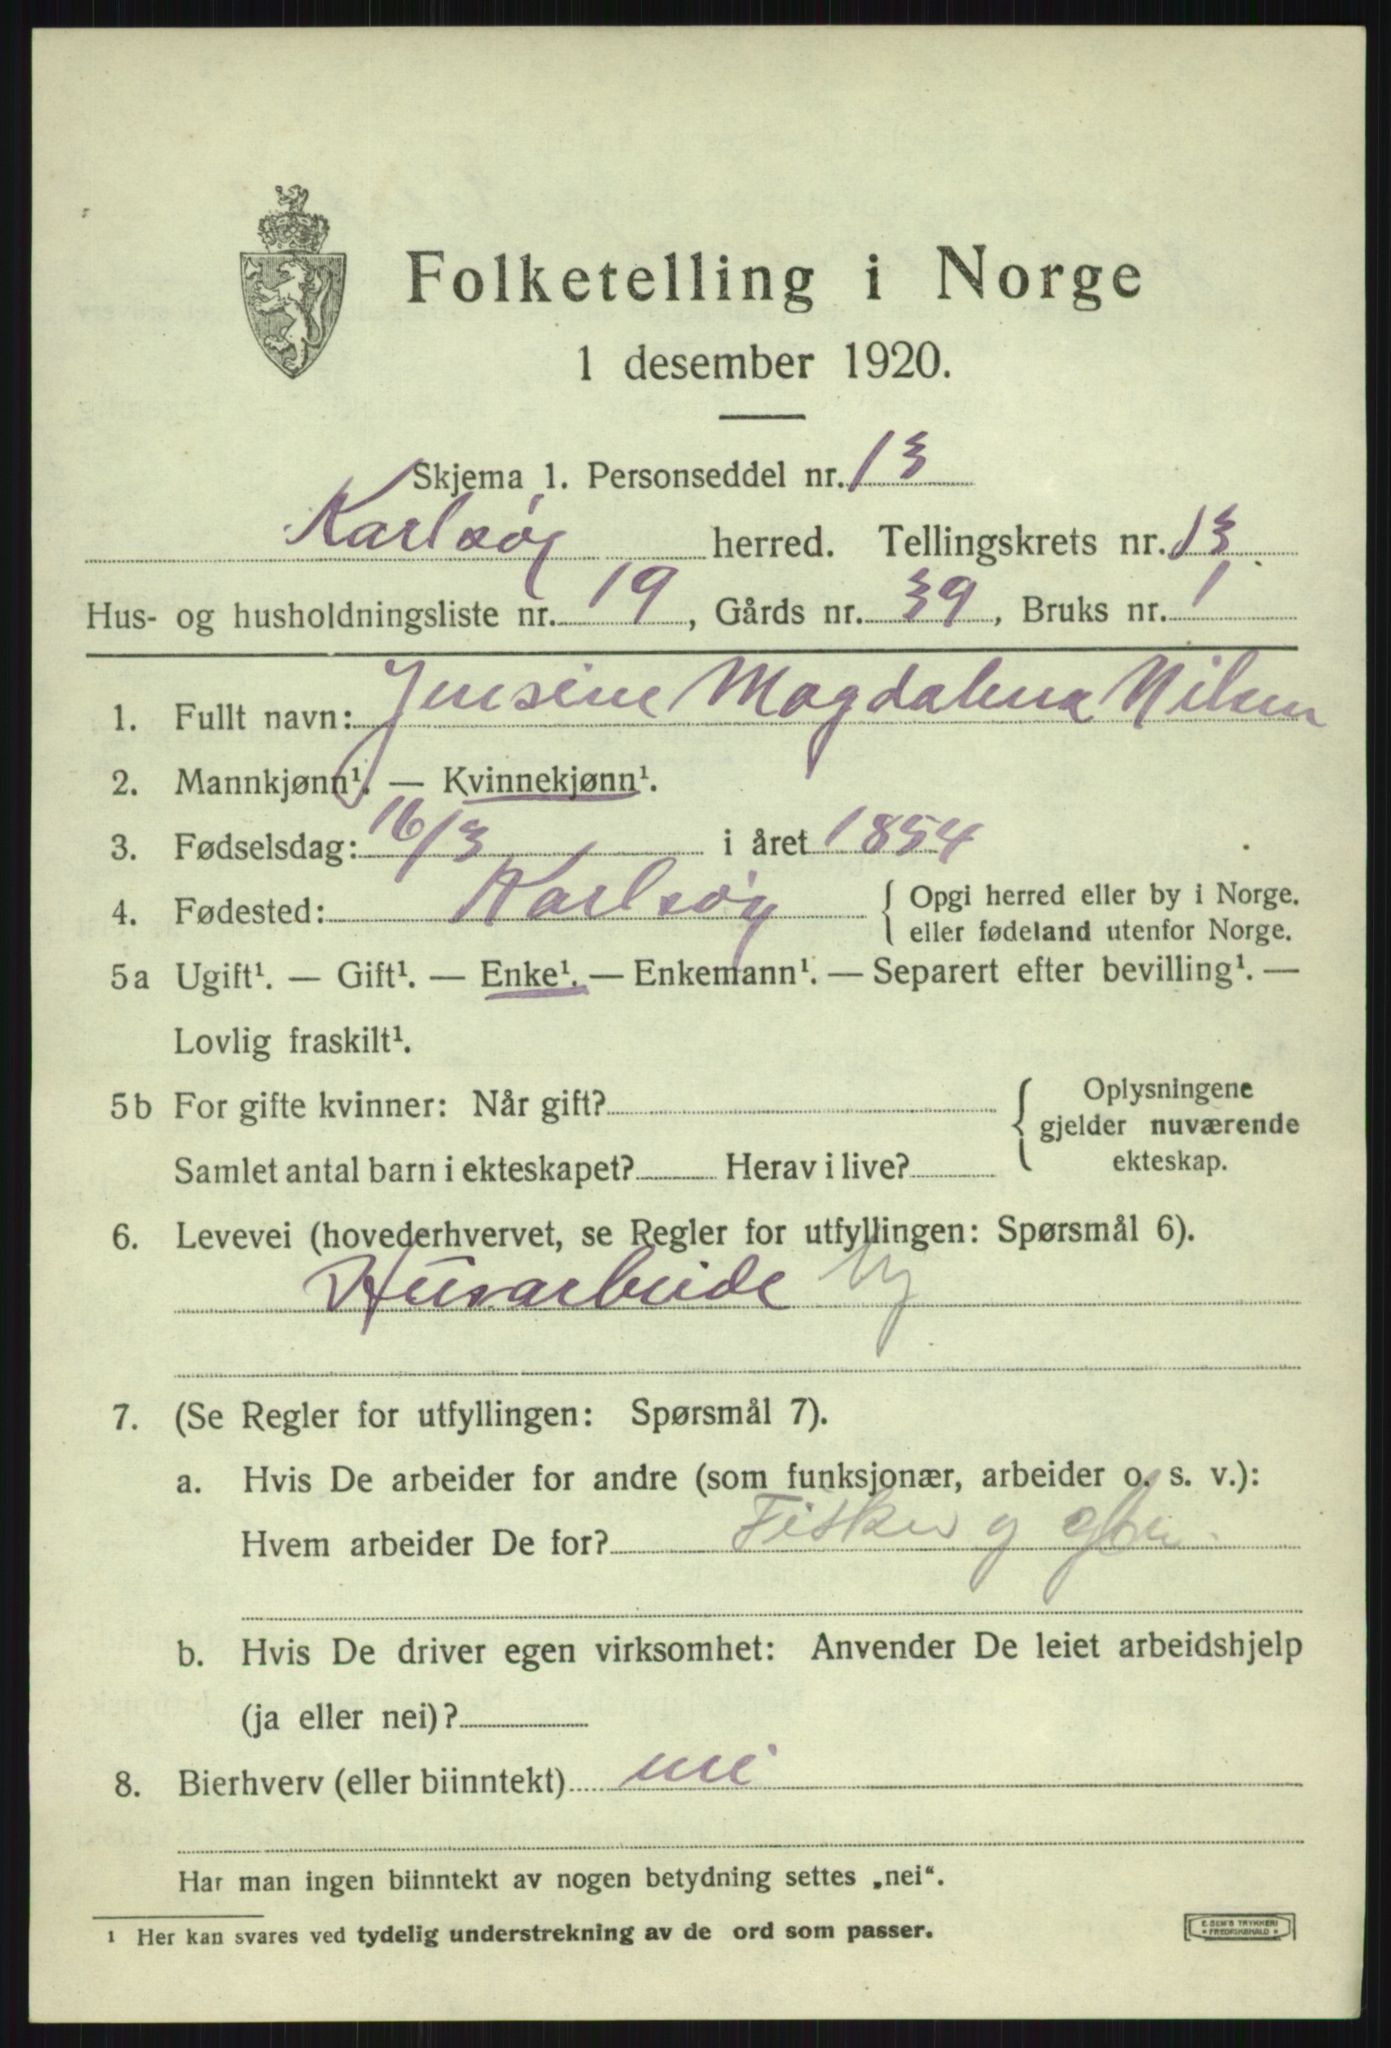 Folketelling i Norge
1 desember 1920.
Skjema 1. Personseddel nr. 13
Karlsøy herred. Tellingskrets nr. 13
Hus- og husholdningsliste nr. 19, Gårds nr. 39, Bruks nr. 1
1. Fullt navn: Jensine Magdalena Nilsen
2. Mannkjønn¹. — Kvinnekjønn¹.
3. Fødselsdag: 16/3 i året 1854
4. Fødested: Karlsøy { Opgi herred eller by i Norge.
eller fødeland utenfor Norge.
5a Ugift¹. — Gift¹. — Enke¹. — Enkemann¹. — Separert efter bevilling¹. —
Lovlig fraskilt¹.
5b For gifte kvinner: Når gift? { Oplysningene
gjelder nuværende
Samlet antal barn i ekteskapet? Herav i live? ekteskap.
6. Levevei (hovederhvervet, se Regler for utfyllingen: Spørsmål 6).
Husarbeide
7. (Se Regler for utfyllingen: Spørsmål 7).
a. Hvis De arbeider for andre (som funksjonær, arbeider o. s. v.):
Hvem arbeider De for? Fisker og
b. Hvis De driver egen virksomhet: Anvender De leiet arbeidshjelp
(ja eller nei)?
8. Bierhverv (eller biinntekt) nei
Har man ingen biinntekt av nogen betydning settes „nei“.
¹ Her kan svares ved tydelig understrekning av de ord som passer.
E. SEM'S TRYKKERI
* FREDRIKSHALD *